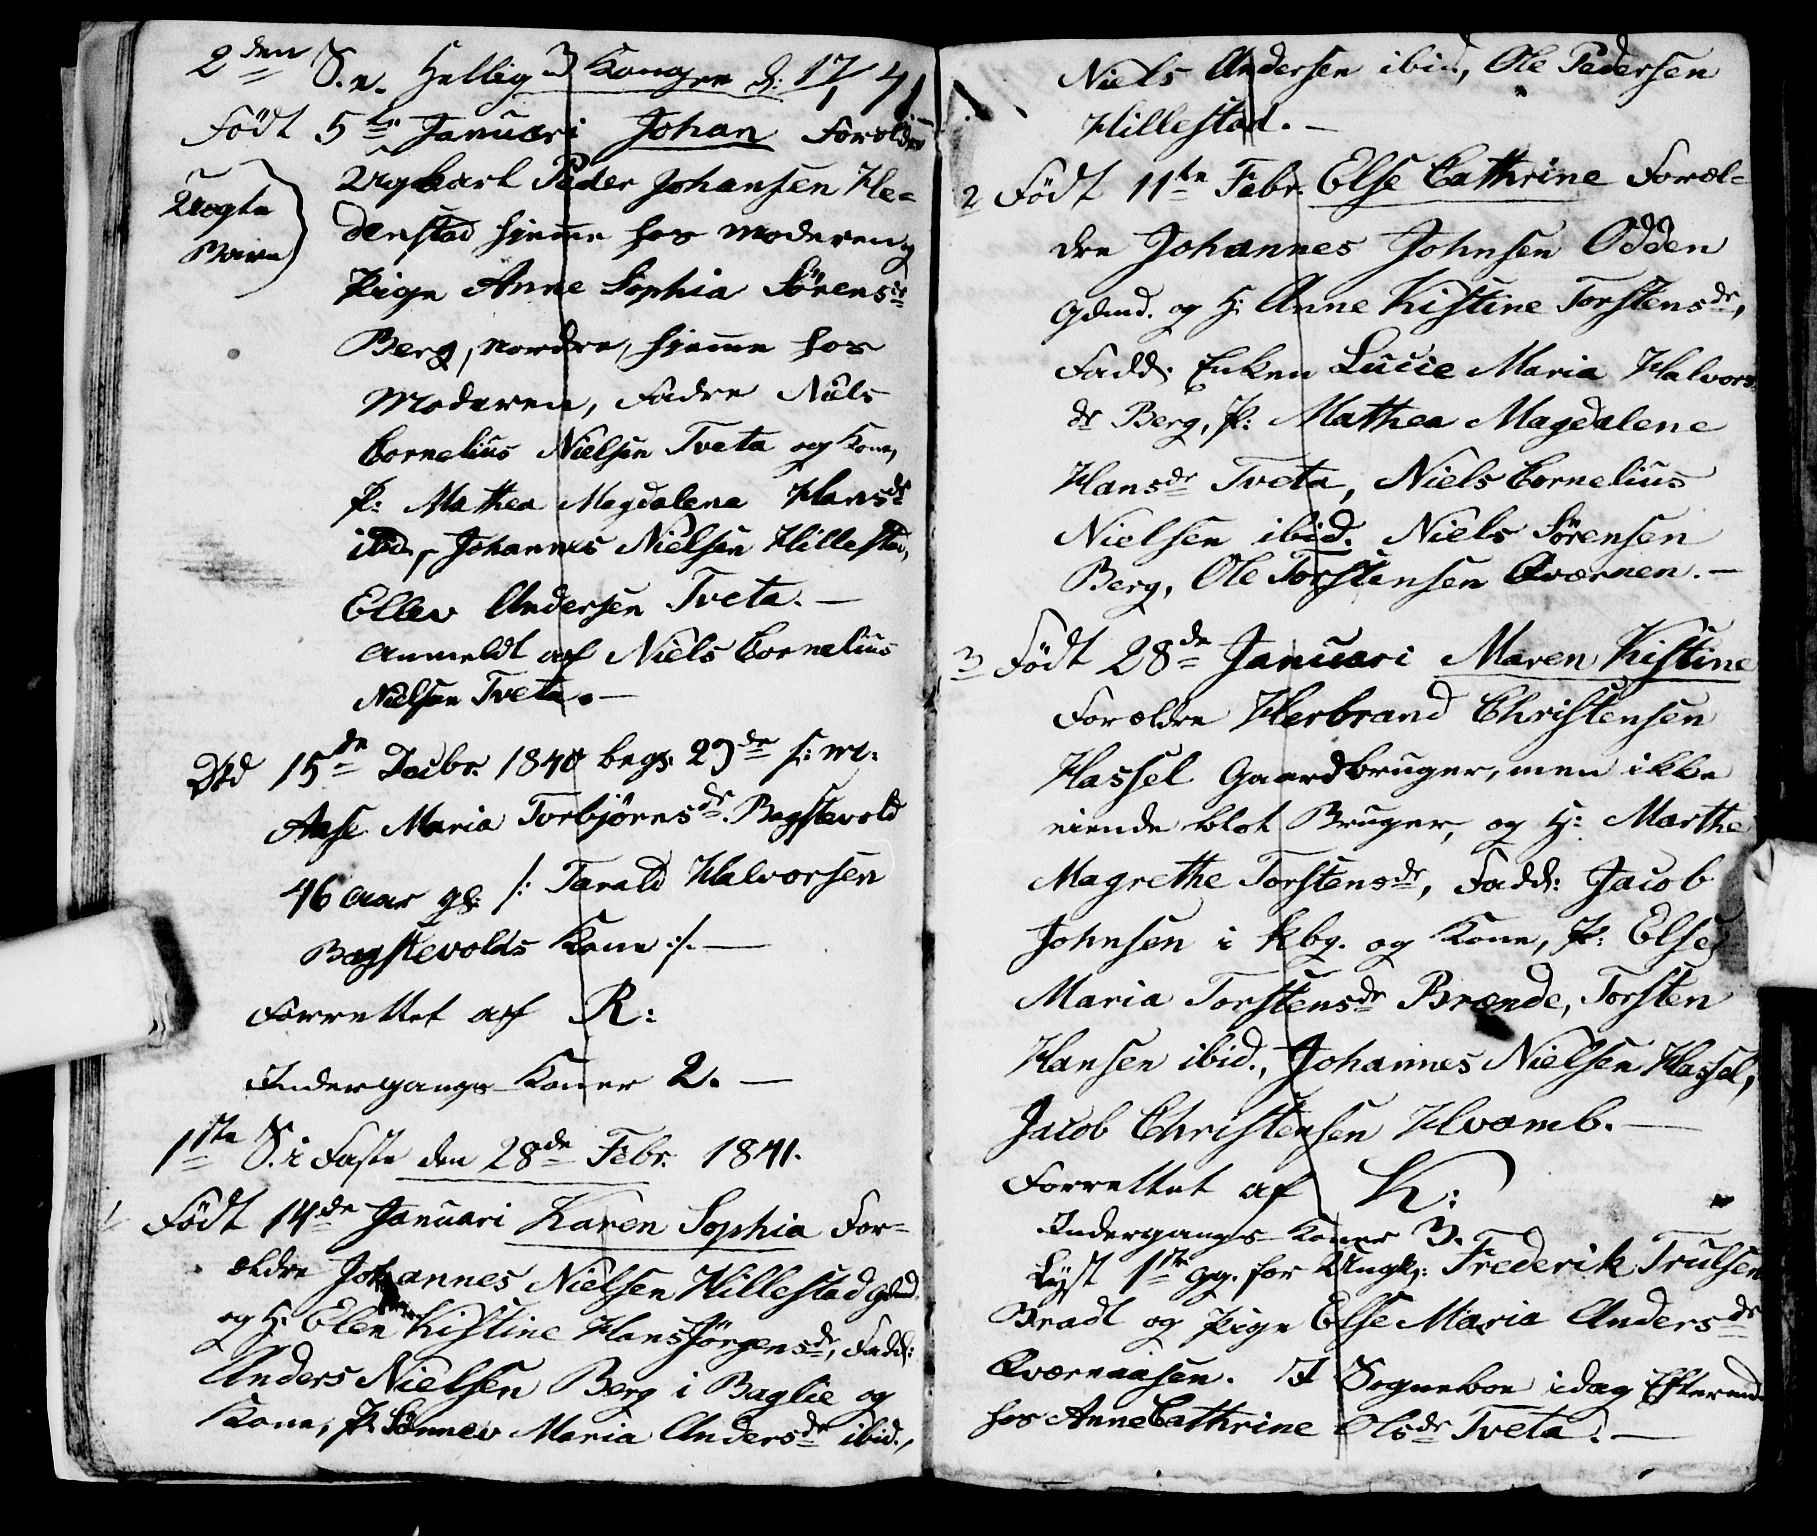 2den S. e. Hellig 3 Konger d: 17/1 41
Født 5te Januari Johan Forældre
Uægte
Barn
Ugkarl Peder Johansen He-
denstad hjeme hos Moderen og
Pige Anne Sophia Sörensdr
Berg, nordre, hjeme hos
Moderen, Fadre Niels
Cornelius Nielsen Tveta og Kone,
P: Mathea Magdalena Hansdr
ibid, Johannes Nielsen Hillestad,
Ellev Andersen Tveta. —
Anmeldt af Niels Cornelius
Nielsen Tveta. —
Død 15de Decbr. 1840 begr. 29de s: m:
Aase Maria Torbjörnsdr. Bagstevold
46 aar gl: /: Tarald Halvorsen
Bagstevolds Kone :/. —
Forrettet af R:
Indergangs-Koner 2. —
1ste S. i Faste den 28de Febr. 1841.
1 Født 14de Januari Karen Sophia For-
ældre Johannes Nielsen Hillestad Gdmd.
og H: Elen Kistine HansJörgensdr, Fadd:
Anders Nielsen Berg i Baglie og
Kone, P: Sönnev Maria Andersdr ibid.,
Niels Andersen ibid., Ole Pedersen
Hillestad. —
2 Født 11te Febr. Else Cathrine Foræl-
dre Johannes Johnsen Odden
Gdmd. og H: Anne Kistine Torstensdr,
Fadd: Enken Lucie Maria Halvors
dr Berg, P: Mathea Magdalene
Hansdr Tveta, Niels Cornelius
Nielsen ibid. Niels Sörensen
Berg, Ole Torstensen Qværnen. —
3 Født 28de Januari Maren Kistine
Forældre Herbrand Christensen
Hassel Gaardbruger, men ikke
eiende blot Bruger, og H: Marthe
Magrethe Torstensdr, Fadd: Jacob
Johnsen i Kbg. og Kone, P: Else
Maria Torstensdr Brænde, Torsten
Hansen ibid., Johannes Nielsen Hassel,
Jacob Christensen Hvamb. —
Forrettet af K:
Indergangs-Koner 3.
Lyst 1ste gg. for Ungk: Frederik Trulsen
Bradt og Pige Else Maria Andersdr
Qværnaasen. I Sognebon idag Efterend
hos Anne Cathrine Olsdr Tveta. —